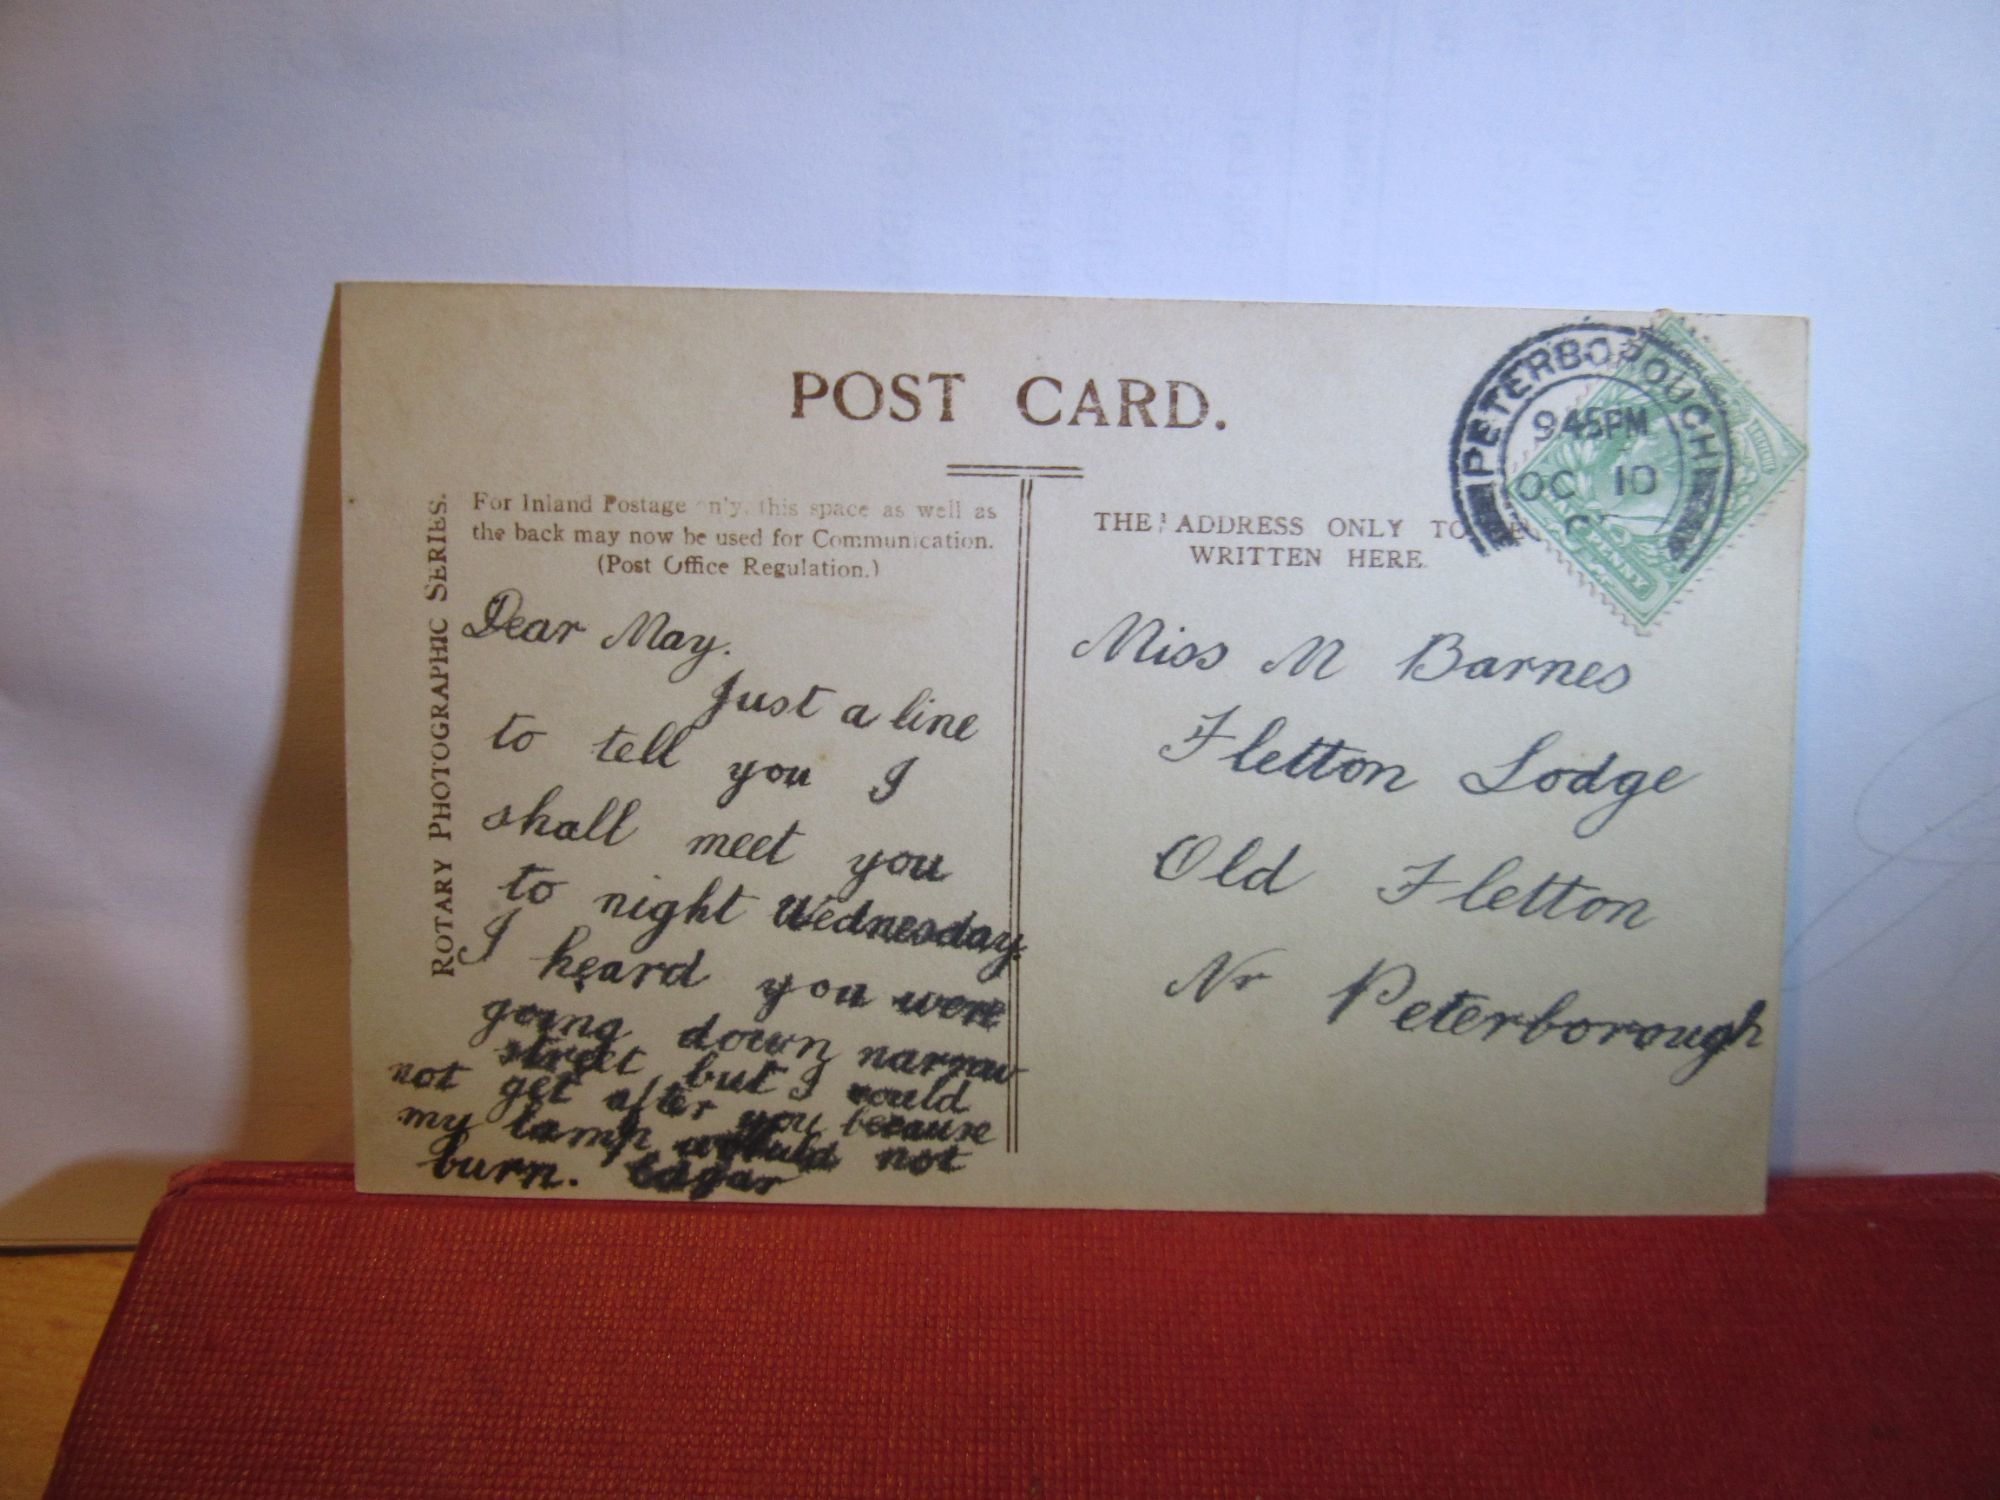 POST CARD.
ROTARY PHOTOGRAPHIC SERIES.
For Inland Postage only, this space as well as
the back may now be used for Communication.
(Post Office Regulation.)
THE ADDRESS ONLY TO BE
WRITTEN HERE.
PETERBOROUGH
9 45PM
OC 10
PENNY
Dear May.
Just a line
to tell you I
shall meet you
to night Wednesday.
I heard you were
going down narrow
street but I could
not get after you because
my lamp would not
burn. Edgar
Miss M Barnes
Fletton Lodge
Old Fletton
Nr Peterborough